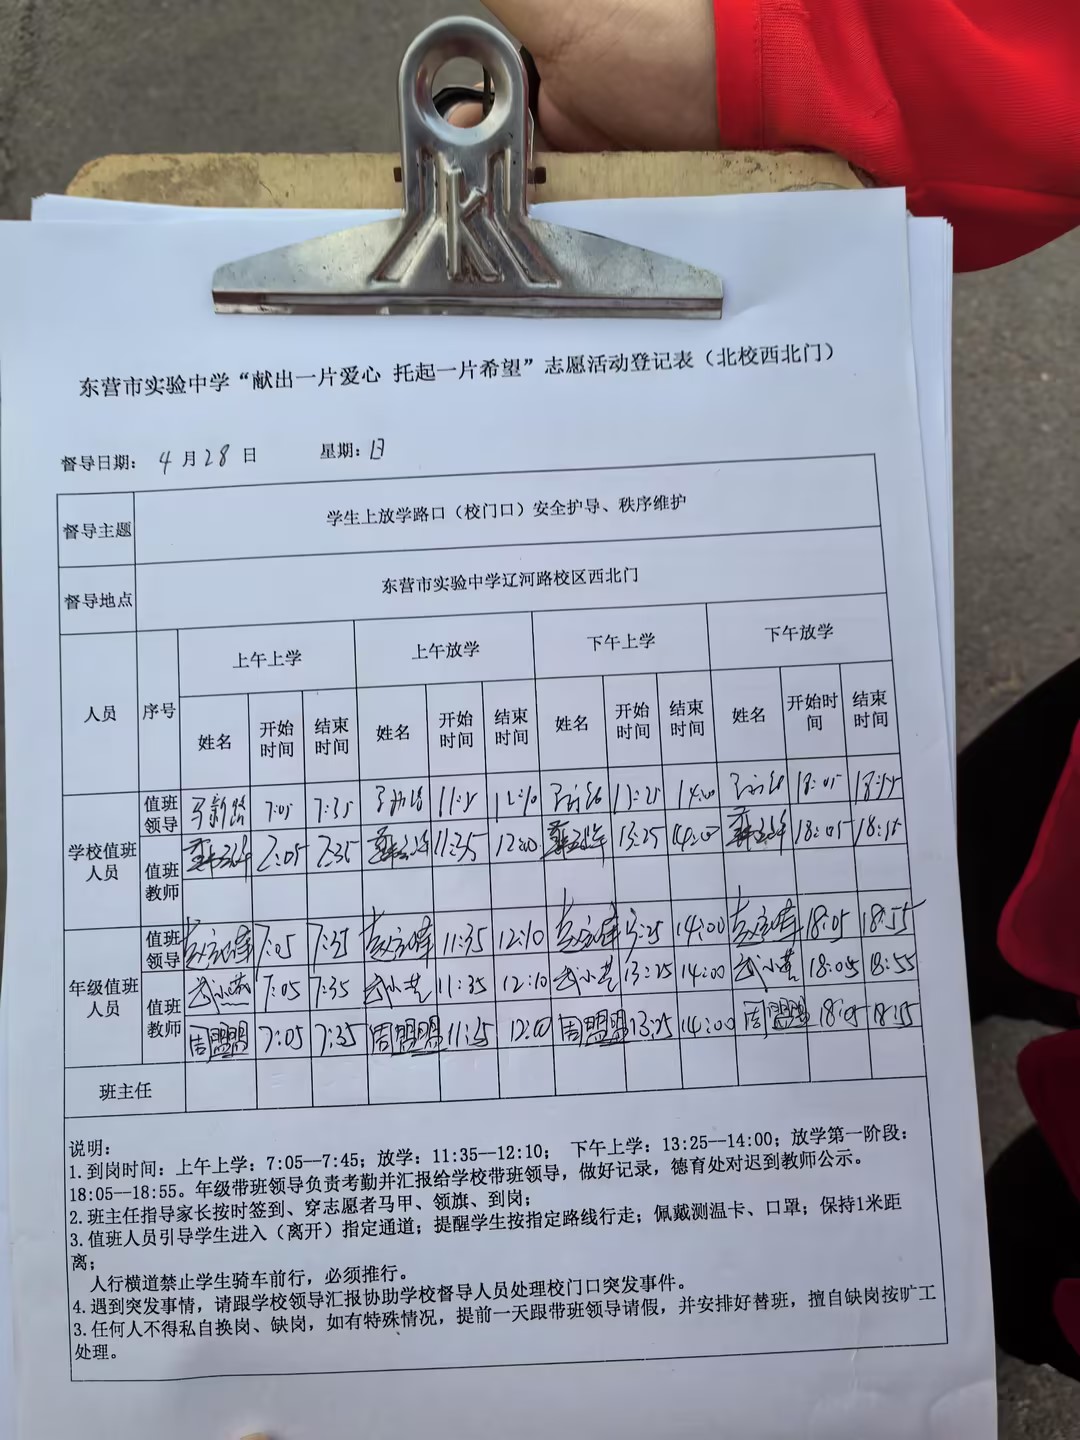 东营市实验中学“献出一片爱心 托起一片希望”志愿活动登记表（北校西北门）
督导日期： 4 月 28 日 星期：日
督导主题 学生上放学路口（校门口）安全护导、秩序维护
督导地点 东营市实验中学辽河路校区西北门
人员 序号 上午上学 上午放学 下午上学 下午放学
姓名 开始时间 结束时间 姓名 开始时间 结束时间 姓名 开始时间 结束时间 姓名 开始时间 结束时间
学校值班人员 值班领导 7:05 7:35 14:00 18:05
值班教师 7:05 7:35 11:35 12:00 13:25 14:00 18:05
年级值班人员 值班领导 7:05 7:35 11:35 12:10 14:00 18:05 18:55
值班教师 武小燕 7:05 7:35 11:35 12:10 13:25 14:00 18:05 18:55
周盟盟 7:05 7:35 周盟盟 12:00 周盟盟 13:25 14:00 周盟盟 18:05
班主任
说明：
1.到岗时间：上午上学：7:05--7:45；放学：11:35--12:10； 下午上学：13:25--14:00；放学第一阶段：
18:05--18:55。年级带班领导负责考勤并汇报给学校带班领导，做好记录，德育处对迟到教师公示。
2.班主任指导家长按时签到、穿志愿者马甲、领旗、到岗；
3.值班人员引导学生进入（离开）指定通道；提醒学生按指定路线行走；佩戴测温卡、口罩；保持1米距
离；
人行横道禁止学生骑车前行，必须推行。
4.遇到突发事情，请跟学校领导汇报协助学校督导人员处理校门口突发事件。
3.任何人不得私自换岗、缺岗，如有特殊情况，提前一天跟带班领导请假，并安排好替班，擅自缺岗按旷工
处理。